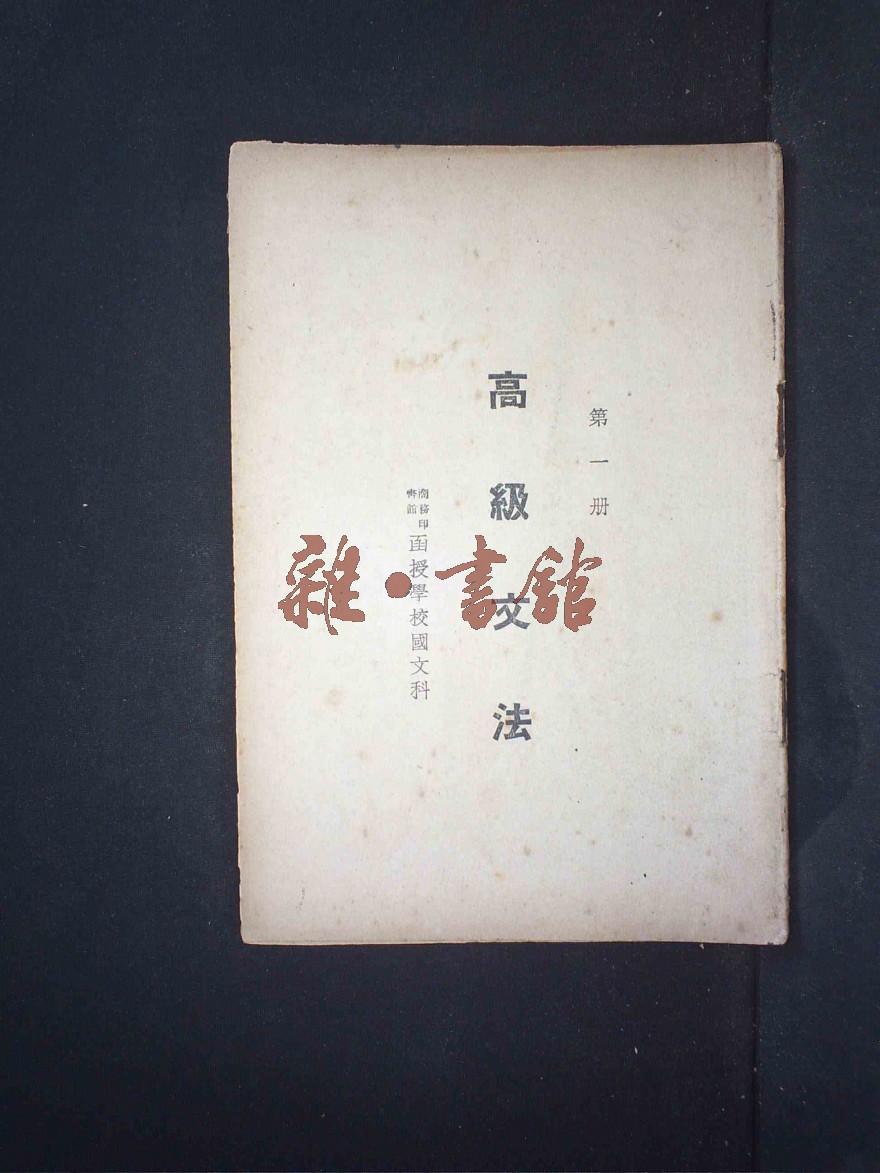 第一册
高級文法
商務印書館
函授學校國文科
雜·書館